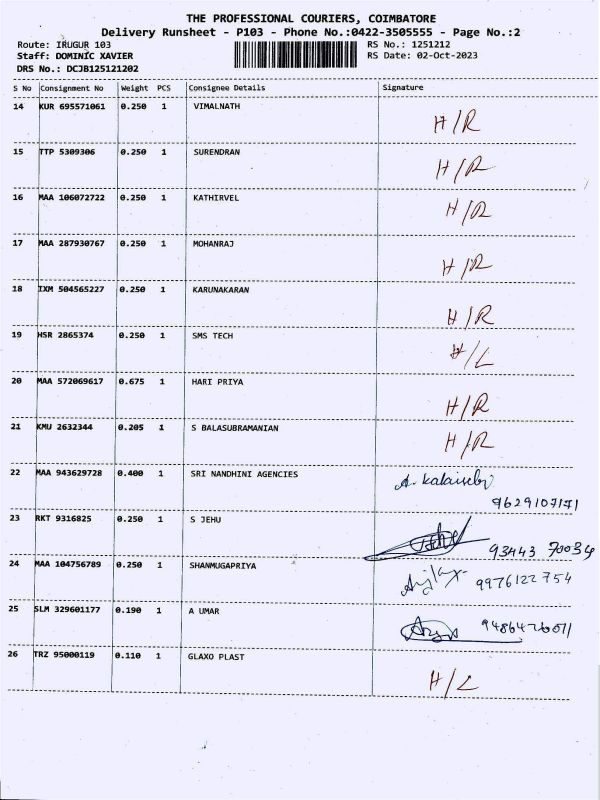 THE PROFESSIONAL COURIERS, COIMBATORE
Delivery Runsheet - P103 - Phone No.:0422-3505555 - Page No.:2
Route: IRUGUR 103 RS No.: 1251212
Staff: DOMINIC XAVIER RS Date: 02-Oct-2023
DRS No.: DCJB125121202
S No Consignment No Weight PCS Consignee Details Signature
14 KUR 695571061 0.250 1 VIMALNATH H/R
15 TTP 5309306 0.250 1 SURENDRAN H/R
16 MAA 106072722 0.250 1 KATHIRVEL H/R
17 MAA 287930767 0.250 1 MOHANRAJ H/R
18 IXM 504565227 0.250 1 KARUNAKARAN H/R
19 HSR 2865374 0.250 1 SMS TECH H/L
20 MAA 572069617 0.675 1 HARI PRIYA H/R
21 KMU 2632344 0.205 1 S BALASUBRAMANIAN H/R
22 MAA 943629728 0.400 1 SRI NANDHINI AGENCIES A. Kalaiselvi
9629107171
23 RKT 9316825 0.250 1 S JEHU 93443 70034
24 MAA 104756789 0.250 1 SHANMUGAPRIYA 9976122754
25 SLM 329601177 0.190 1 A UMAR
26 TRZ 95000119 0.110 1 GLAXO PLAST H/L